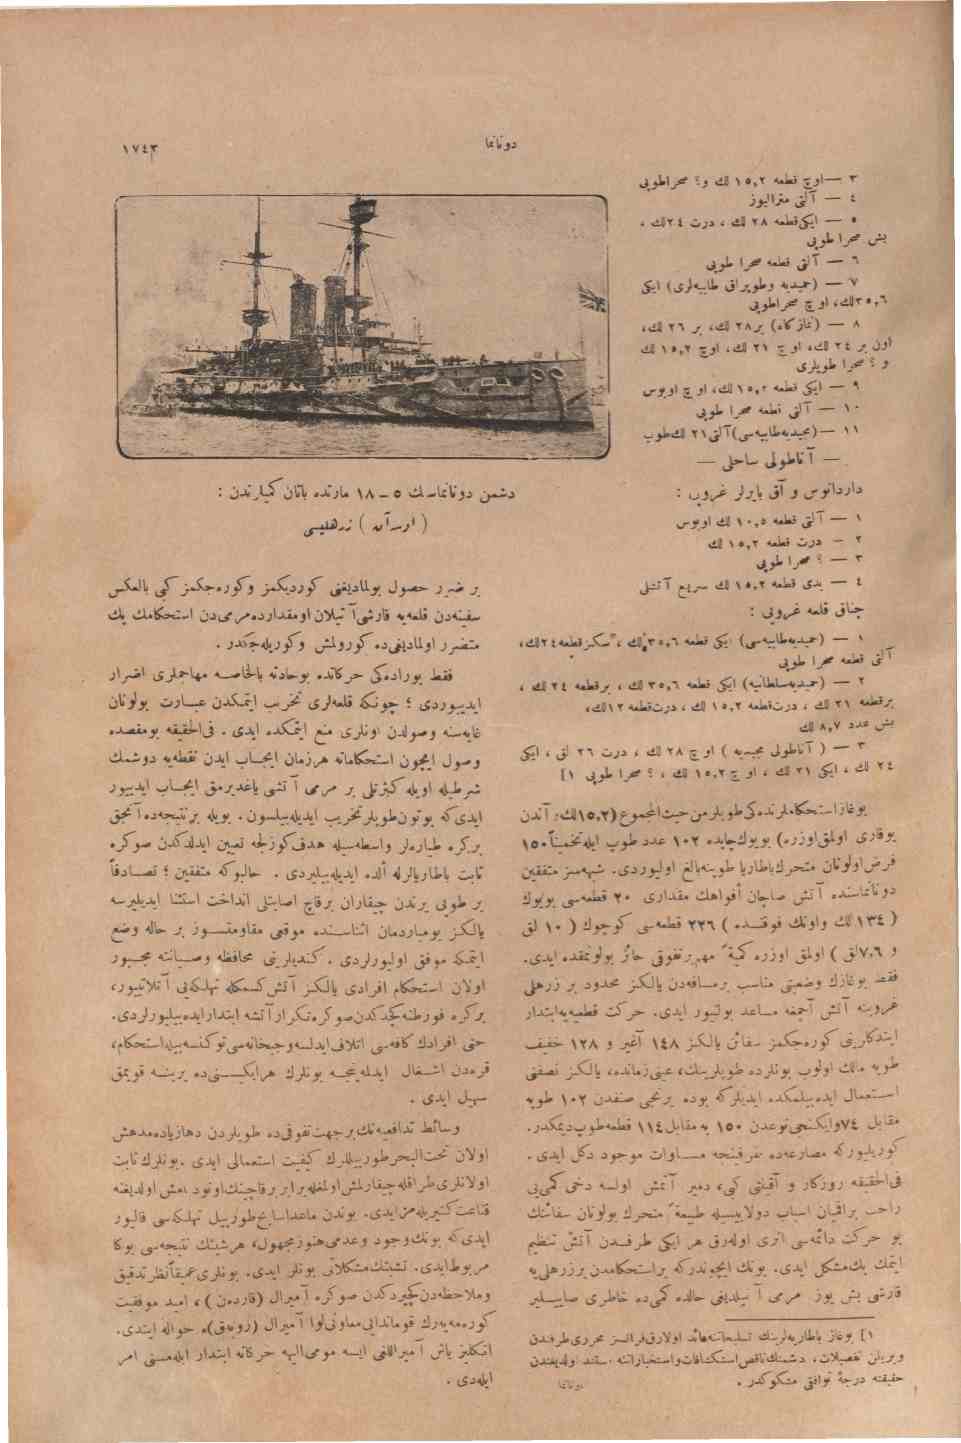 دونانما
١٧٤٣
٣ — اوچ قطعه ١٥,٢ لك و؟ صحراطوپی
٤ — آلتی متراليوز
٥ — ایکی‌قطعه ٢٨ لك ، درت ٢٤ لك ،
بش صحرا طوپی
٦ — آلتی قطعه صحرا طوپی
٧ — (حمیدیه وطوپراق طابیه‌لری) ایکی
٣٥,٦ لك، اوچ صحراطوپی
٨ — (نمازكاه) بر ٢٨ لك، بر ٢٦ لك،
اون بر ٢٤ لك، اوچ ٢١ لك، اوچ ١٥,٢ لك
و ؟ صحرا طوپلری
٩ — ایکی قطعه ١٥,٢ لك، اوچ اوبوس
١٠ — آلتی قطعه صحرا طوپی
١١ — (مجیدیه‌طابیه‌سی) آلتی ٢١ لك‌طوپ
— آناطولی ساحلی —
داردانوس و آق یارلر غروپی :
١ — آلتی قطعه ١٠,٥ لك اوبوس
٢ — درت قطعه ١٥,٢ لك
٣ — ؟ صحرا طوپی
٤ — یدی قطعه ١٥,٢ لك سریع آتشلی
چناق قلعه غروپی :
١ — (حمیدیه‌طابیه‌سی) ایکی قطعه ٣٥,٦ لك ، سکزقطعه ٢٤ لك،
آلتی قطعه صحرا طوپی
٢ — (حمیدیه‌سلطانیه) ایکی قطعه ٣٥,٦ لك ، برقطعه ٢٤ لك ،
برقطعه ٢١ لك ، درت‌قطعه ١٥,٢ لك ، درت‌قطعه ١٢ لك،
بش عدد ٨,٧ لك
٣ — ( آناطولی مجیدیه ) اوچ ٢٨ لك ، درت ٢٦ لق ، ایکی
٢٤ لك ، ایکی ٢١ لك ، اوچ ١٥,٢ لك ، ؟ صحرا طوپی [١
بوغاز استحکاملرنده‌کی طوپلر من حیث المجموع (١٥,٢ لك، آندن
یوقاری اولمق اوزره) بویوك چاپده ١٠٢ عدد طوپ ایله تخمیناً ١٥٠
فرض اولونان متحرك باطاریا طوپنه بالغ اولیوردی. شبهه‌سز متفقین
دونانماسنده آتش صاچان أفواهك مقداری ٢٠ قطعه‌سی بویوك
( ١٣٤ لك واونك فوقنده ) ٢٢٦ قطعه‌سی کوچوك ( ١٠ لق
و ٧,٦ لق ) اولمق اوزره کمیةً مهم برتفوقی حائز بولونمقده ایدی.
فقط بوغازك وضعیتی مناسب برمسافه‌دن یالکز محدود بر زرهلی
غروپنه آتش آچمغه مساعد بولنیور ایدی. حرکت قطعیه‌یه ابتدار
ایتدکارینی کوره‌جکمز سفائن یالکز ١٤٨ آغیر و ١٢٨ خفیف
طوپه مالك اولوب بونلرده طوپلرینك، عینی زمانده، یالکز نصفنی
استعمال ایده‌بیلمکده ایدیلرکه بوده برنجی صنفدن ١٠٢ طوپه
مقابل ٧٤ و ایکنجی نوعدن ١٥٠ یه مقابل ١١٤ قطعه‌طوپ دیمکدر.
کوریلیورکه مصارعه‌ده نفرفیتجه مساوات موجود دکل ایدی.
فی‌الحقیقه روزکار و آقینتی کبی، دمیر آتمش اولسه دخی کمی‌یی
راحت براقمیان اسباب دولاییسیله طبیعةً متحرك بولونان سفائنك
بو حرکت دائمه‌سی اثری اوله‌رق هر ایکی طرفدن آتش تنظیم
ایتمك پك‌مشکل ایدی. بونك ایچوندرکه براستحکامدن برزرهلی‌یه
قارشی بش یوز مرمی آتیلدیغی حالده کمی‌ده خاطری صاییلیر
[١ بوغاز باطاریه‌لرینك تسلیحاتنه‌عائد اولارق‌فرانسز محرری‌طرفندن
ویریلن تفصیلات، دشمنك‌ناقص‌استکشافات‌واستخباراتنه مستند اولدیغندن
حقیقته درجهٔ توافقی مشکوکدر .
دونانما
دشمن دونانماسنك ٥ — ١٨ مارتده باتان کمیلرندن :
( اوسه‌آن ) زرهلیسی
بر ضرر حصول بولمادیغنی کوردیکمز وکوره‌جکمز کبی بالعکس
سفینه‌دن قلعه‌یه قارشی آتیلان اومقدارده‌مرمی‌دن استحکامك پك
متضرر اولمادیغی‌ده کورولمش وکوریله‌جکدر .
فقط بوراده‌کی حرکاتده بوحادثه بالخاصه مهاجملری اضرار
ایدییوردی ؛ چونکه قلعه‌لری تخریب ایتمکدن عبارت بولونان
غایه‌سنه وصولدن اونلری منع ایتمکده ایدی . فی‌الحقیقه بومقصده
وصول ایچون استحکاماته هرزمان ایجاب ایدن نقطه‌یه دوشمك
شرطیله اویله کثرتلی بر مرمی آتشی یاغدیرمق ایجاب ایدییور
ایدی‌که بوتون‌طوپلر تخریب ایدیله‌بیلسون . بویله برنتیجه‌ده آنجق
برکره طیاره‌لر واسطه‌سیله هدف‌کوزلجه تعیین ایدلدکدن صوکره
ثابت باطاریالرله ألده ایدیله‌بیلیردی . حالبوکه متفقین ؛ تصادفاً
بر طوپی یرندن چیقاران برقاچ اصابتلی انداخت استثنا ایدیلیرسه
یالکز بومباردمان اثناسنده موقعی مقاومتسز بر حاله وضع
ایتمکه موفق اولیورلردی . کندیلرینی محافظه وصیانته مجبور
اولان استحکام افرادی یالکز آتش کسمکله تهلکه‌یی آتلاتییور،
برکره فورطنه کچدکدن صوکره تکرار آتشه ابتدار ایده‌بیلیورلردی.
حتی افرادك کافه‌سی اتلاف ایدلسه وجبخانه‌سی توکنسه‌بیله استحکام،
قره‌دن اشغال ایدلمه‌ینجه بونلرك هرایکیسنی‌ده یرینه قویمق
سهل ایدی .
وسائط تدافعیه‌نك برجهت تفوقی‌ده طوپلردن دهازیاده‌مدهش
اولان تحت‌البحر طورپیللرك کیفیت استعمالی ایدی . بونلرك ثابت
اولانلری طراقله چیقارلمش اولمغله برابر برقاچینك اونودلمش اولدیغنه
قناعت کتیریله‌مز ایدی. بوندن ماعدا سابح طورپیل تهلکه‌سی قالیور
ایدی‌که بونك وجود وعدمی هنوز مجهول، هرشیئك نتیجه‌سی بوکا
مربوط ایدی. تشبثك مشکلاتی بونلر ایدی. بونلری عمیقاً نظر تدقیق
وملاحظه‌دن کچیردکدن صوکره آمیرال (قارده‌ن) ، امید موفقیت
کوره‌مه‌یه‌رك قوماندایی معاونی لوا آمیرال (روبه‌ق)ه حواله ایتدی.
انکلیز باش آمیرالغی ایسه مومی‌الیه حرکاته ابتدار ایله‌مسنی امر
ایله‌دی .